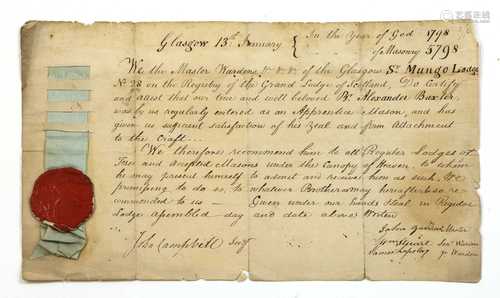 Glasgow 13th January { In the Year of God 1798
of Masonry 5798
We the Master Wardens &c &c &c of the Glasgow St Mungo Lodge
No 28 on the Registry of the Grand Lodge of Scotland, Do Certify
and attest that our true and well beloved Br. Alexander Baxter
was by us regularly entered as an Apprentice Mason, and has
given us sufficient satisfaction of his Zeal and firm Attachment
to the Craft
We therefore recommend him to all Regular Lodges of
Free and accepted Masons under the Canopy of Heaven to whom
he may present himself to admit and receive him as such, We
promising to do so, to whatever Brother may hereafter so re-
commended to us — Given under our hands & Seal in Regular
Lodge assembled day and date above Writen
John Master
Jho Campbell Secy Stuart Senr Warden
James Jr Warden